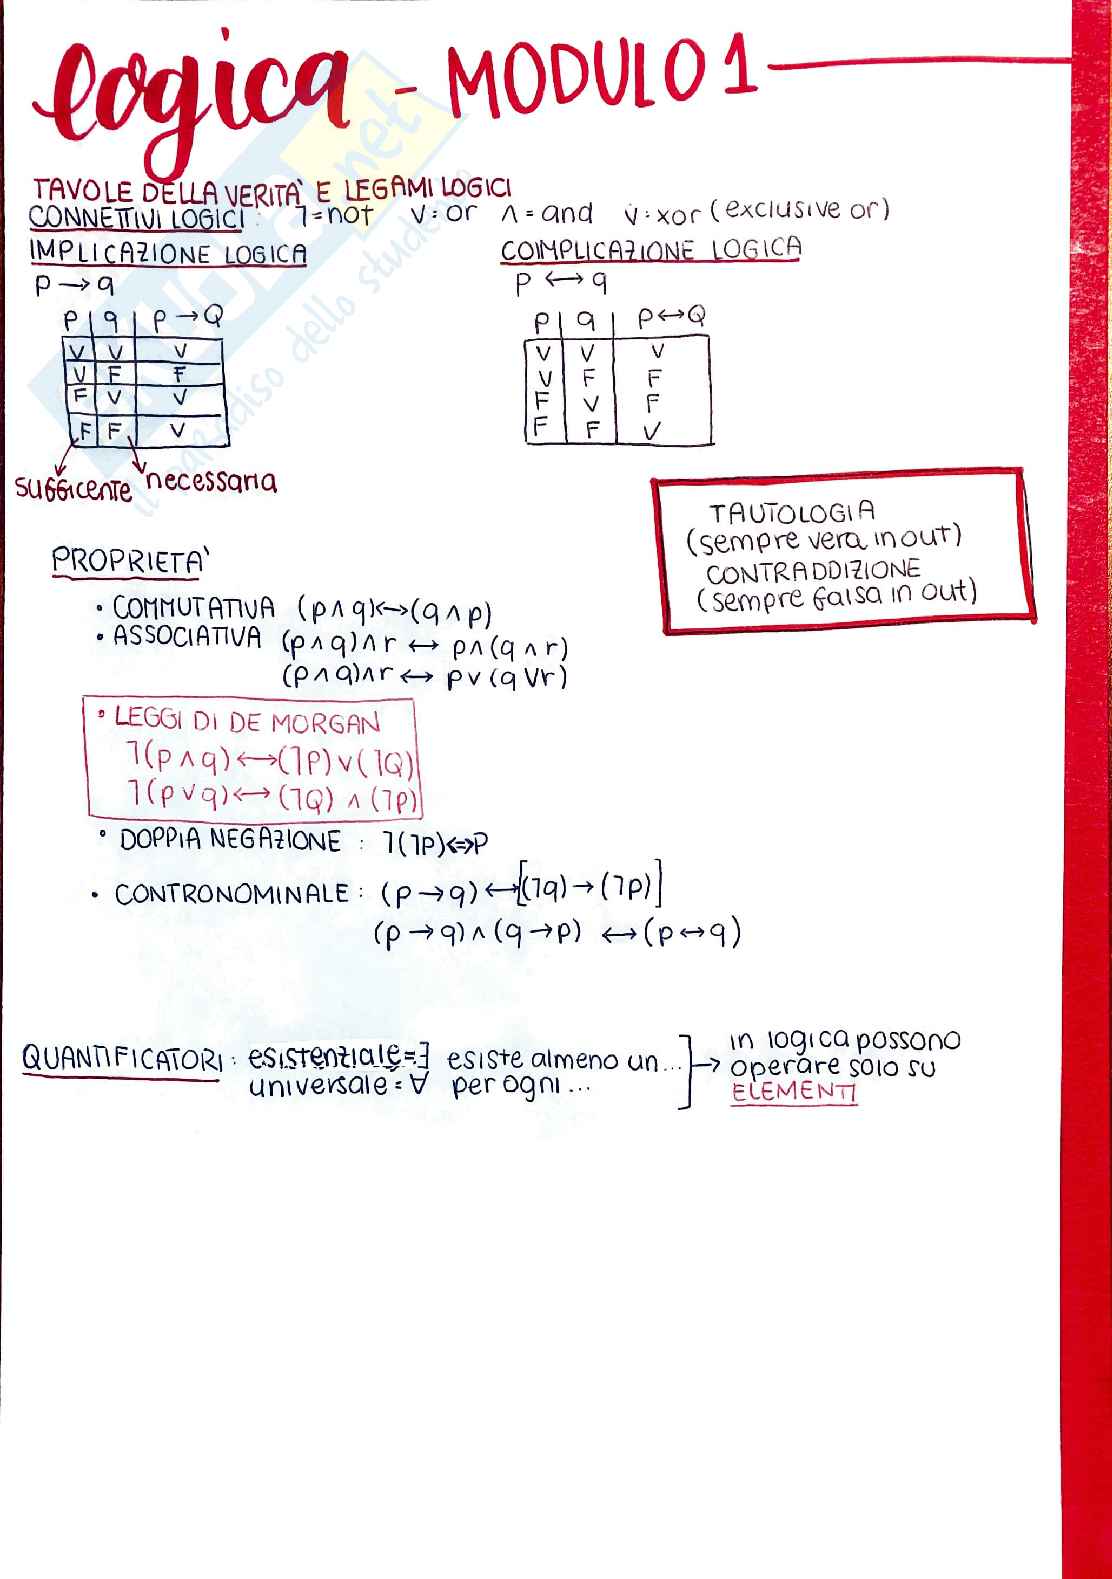 logica - MODULO 1
TAVOLE DELLA VERITA' E LEGAMI LOGICI
CONNETTIVI LOGICI: ˥=not v=or ʌ=and v̇:xor (exclusive or)
IMPLICAZIONE LOGICA
p → q
p | q | p → Q
V V V
V F F
F V V
F F V
sufficente necessaria
COIMPLICAZIONE LOGICA
p ↔ q
p | q | p ↔ Q
V V V
V F F
F V F
F F V
TAUTOLOGIA
(sempre vera in out)
CONTRADDIZIONE
(sempre falsa in out)
PROPRIETA'
• COMMUTATIVA (p ʌ q) ↔ (q ʌ p)
• ASSOCIATIVA (p ʌ q) ʌ r ↔ p ʌ (q ʌ r)
(p ʌ q) ʌ r ↔ p v (q v r)
• LEGGI DI DE MORGAN
˥(p ʌ q) ↔ (˥P) v (˥Q)
˥(p v q) ↔ (˥Q) ʌ (˥P)
• DOPPIA NEGAZIONE : ˥(˥P) ⇔ P
• CONTRONOMINALE : (p → q) ↔ [(˥q) → (˥p)]
(p → q) ʌ (q → p) ↔ (p ↔ q)
QUANTIFICATORI: esistenziale = ∃ esiste almeno un...
universale = ∀ per ogni...
in logica possono
operare solo su
ELEMENTI
il paradiso dello studente
.net